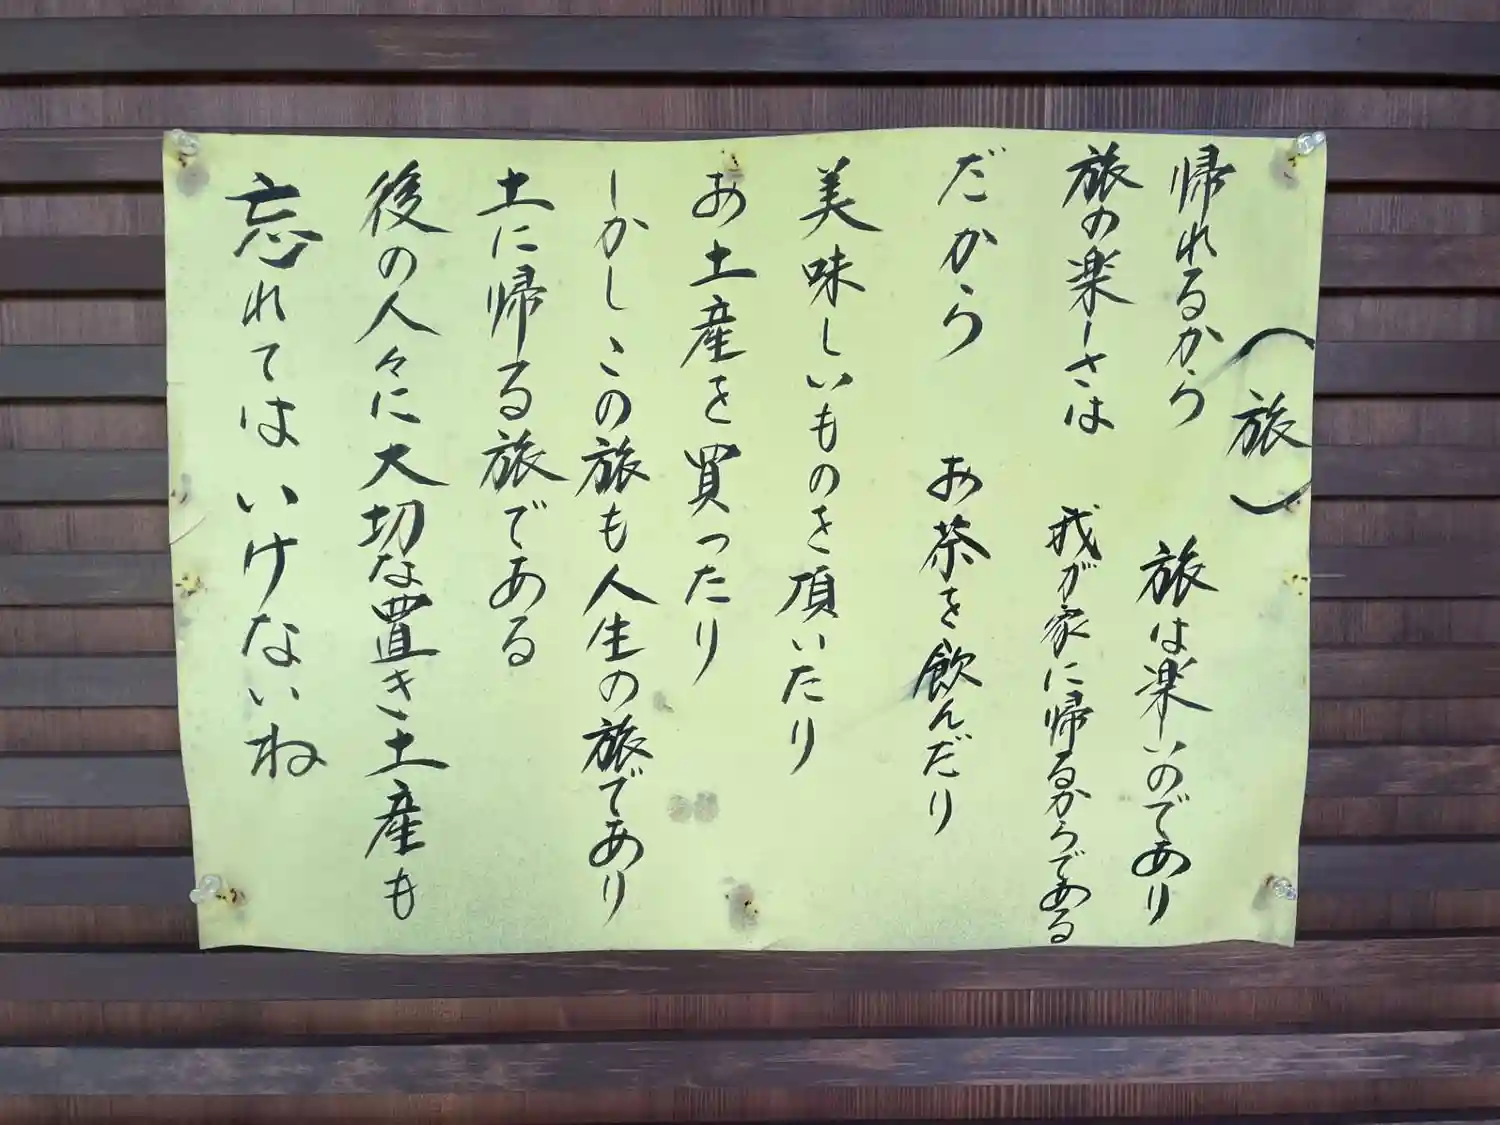 (旅)
帰れるから 旅は楽しいのであり
旅の楽しさは 我が家に帰るからである
だから お茶を飲んだり
美味しいものを頂いたり
お土産を買ったり
しかしこの旅も人生の旅であり
土に帰る旅である
後の人々に大切な置き土産も
忘れてはいけないね